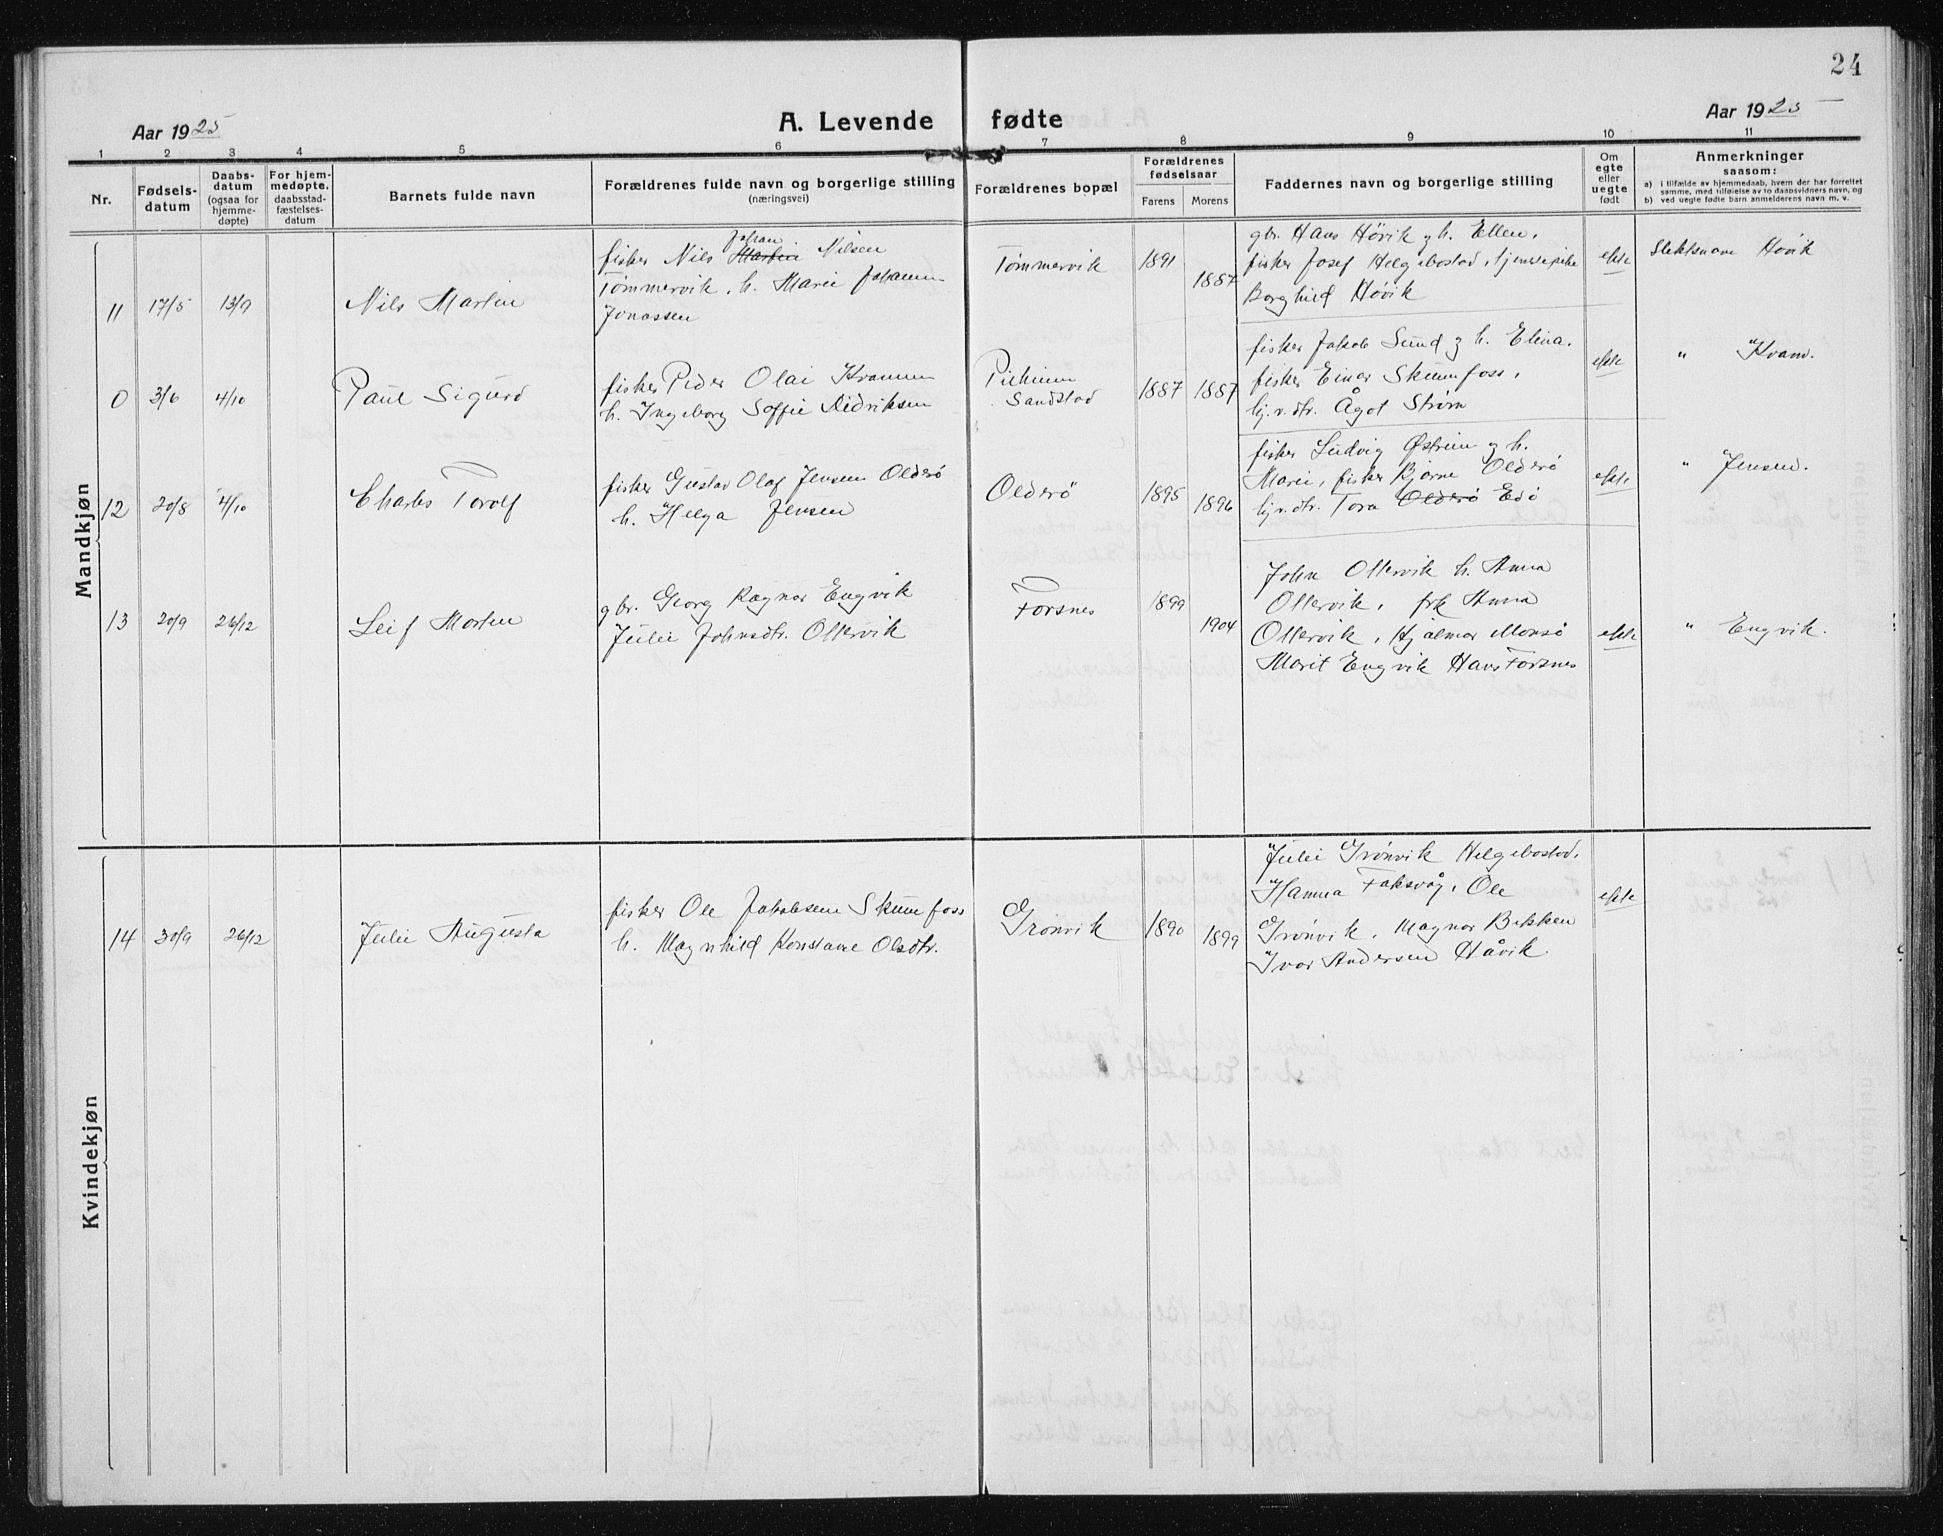 24
Aar 1925
A. Levende fødte
Aar 1925
1 2 3 4 5 6 7 8 9 10 11
Nr.
Fødsels-
datum
Daabs-
datum
(ogsaa for
hjemme-
døpte)
For hjem-
medøpte.
daabsstad-
fæstelses-
datum
Barnets fulde navn
Forældrenes fulde navn og borgerlige stilling
(næringsvei)
Forældrenes bopæl
Forældrenes
fødselsaar
Farens Morens
Faddernes navn og borgerlige stilling
Om
egte
eller
uegte
født
Anmerkninger
saasom:
a) i tilfælde av hjemmedaab, hvem der har forrettet
samme, med tilføielse av to daabsvidners navn, og
b) ved uegte fødte barn anmelderens navn m. v.
Mandkjøn
11 17/5 13/9 Nils Martin
fisker Nils Martin Johan Nilsen
Tømmervik, h. Marie Johanna
Jonassen
Tømmervik 1891 1887
gbr. Hans Høvik og h. Ellen,
fisker Josef Helgebostad, tjenestepike
Borghild Høvik
ekte
Slektsnavn Høvik
0 3/6 4/10 Paul Sigurd
fisker Peder Olai
h. Ingeborg Soffie Didriksen
Sandstad
1887 1887
fisker Jakob Sund og h. Elina,
fisker Einar Skumfoss,
hj.v.dtr. Ågot Strøm
ekte
" Kvam.
12 20/8 4/10 Charles Torolf
fisker Gustav Olaf Jensen Olderø
h. Helga Jensen
Olderö 1895 1896
fisker Ludvig Østreim og h.
Marie, fisker Bjarne Olderø
hj.v.dtr. Tora Olderø Edö
ekte
" Jensen.
13 20/9 26/12 Leif Morten
gbr. Georg Ragnar Engvik
Julie Johnsdtr. Ollervik
Forsnes 1899 1904
John Ollervik h. Anna
Ollervik, frk Anna
Ollervik, Hjalmar Monsö
Marit Engvik Hans Forsnes
ekte
" Engvik.
Kvindekjøn
14 30/9 26/12 Julie Augusta
fisker Ole Jakobsen Skumfoss
h. Magnhild Konstane Olsdtr.
Grönvik 1890 1899
Julie Grönvik Helgebostad,
Hanna Faksvåg, Ole
Grönvik, Magnar Bekken
Ivar Andersen Håvik.
ekte